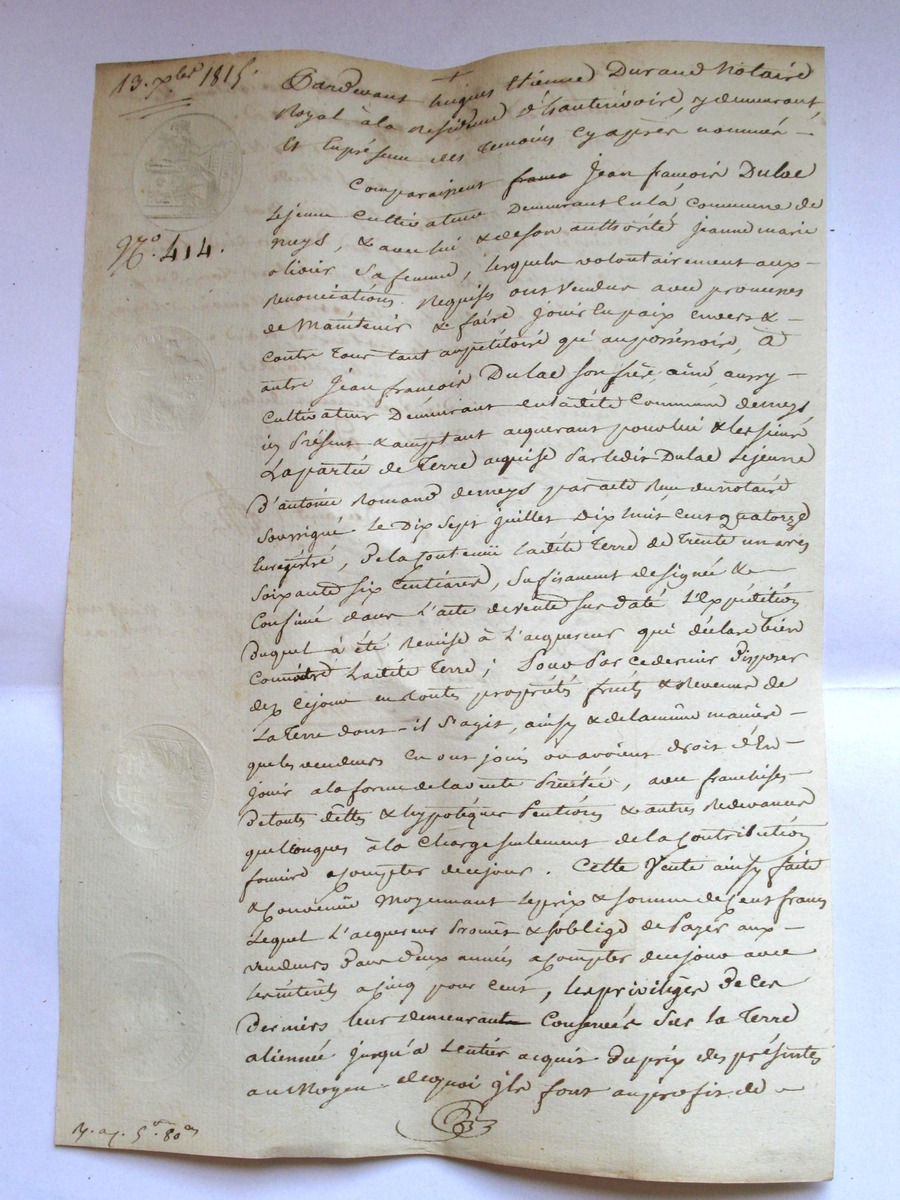 13. xbre 1815
Pardevant hugues Etienne Durand Notaire
Royal à la Residence d'hauterivoire, y demeurant,
et en présence des temoins cy après nommés —
Comparaissent franco Jean francois Dulac
Lejeune Cultivateur Demeurant en la Commune de
meys, & avec lui & de son authorité Jeanne marie
olivier sa femme, lesquels volontairement aux
N.o 414.
Renonciations Requises ont vendu avec promesses
de Maintenir & faire Jouir en paix envers &
contre tous tant au pétitoire qu'au possessoire, à
autre Jean francois Dulac son frère, ainé aussy —
Cultivateur Demeurant en ladite Commune de meys
ici Présent & acceptant acquerant pour lui & les siens
La partie de Terre acquise Par ledit Dulac Lejeune
D'antoine Romand de meys par acte Reçu du notaire
Soussigné le Dix Sept juillet Dix huit cent quatorze
Enregistré, De la Contenue ladite Terre de Trente un ares
Soixante Six Centiares, Sufisament designée &
Confinée dans L'acte de vente sus daté L'Expédition
Duquel à été Remise à L'acquereur qui déclare bien
Connoitre Ladite Terre; Pour Par ce dernier Disposer
dez ce jour en toutes propriétés fruits & Revenus de
La Terre dont-il S'agit, ainsy & de la même manière —
que les vendeurs en ont joui ou avoient droit d'En —
Jouir a la forme de la vente Précitée, avec franchises
De touts dettes & hypotèques Pentions & autres Redevances
quelconques à la Charge seulement de la Contribution
fonciere a compter de ce jour. Cette Vente ainsy faite
& Convenue Moyennant le prix & somme de Cent francs
Lequel L'acquereur Promet & s'oblige de Payer aux —
vendeurs Dans Deux années a compter de ce jour avec
les intérets a cinq pour cent, les privilèges De ces
Derniers leur demeurant Conservés sur la Terre
alienée jusqu'a L'entier acquit du prix des présentes
au Moyen de quoi ils font au profit de —